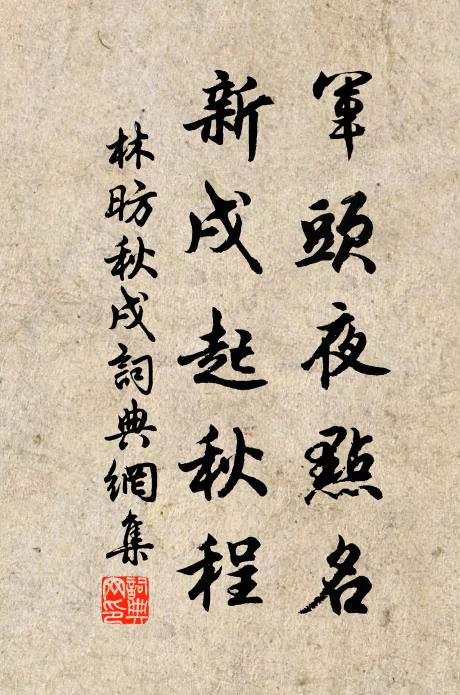 軍頭夜點名
新戍起秋程
林昉秋戍詞典網集
詞典網印